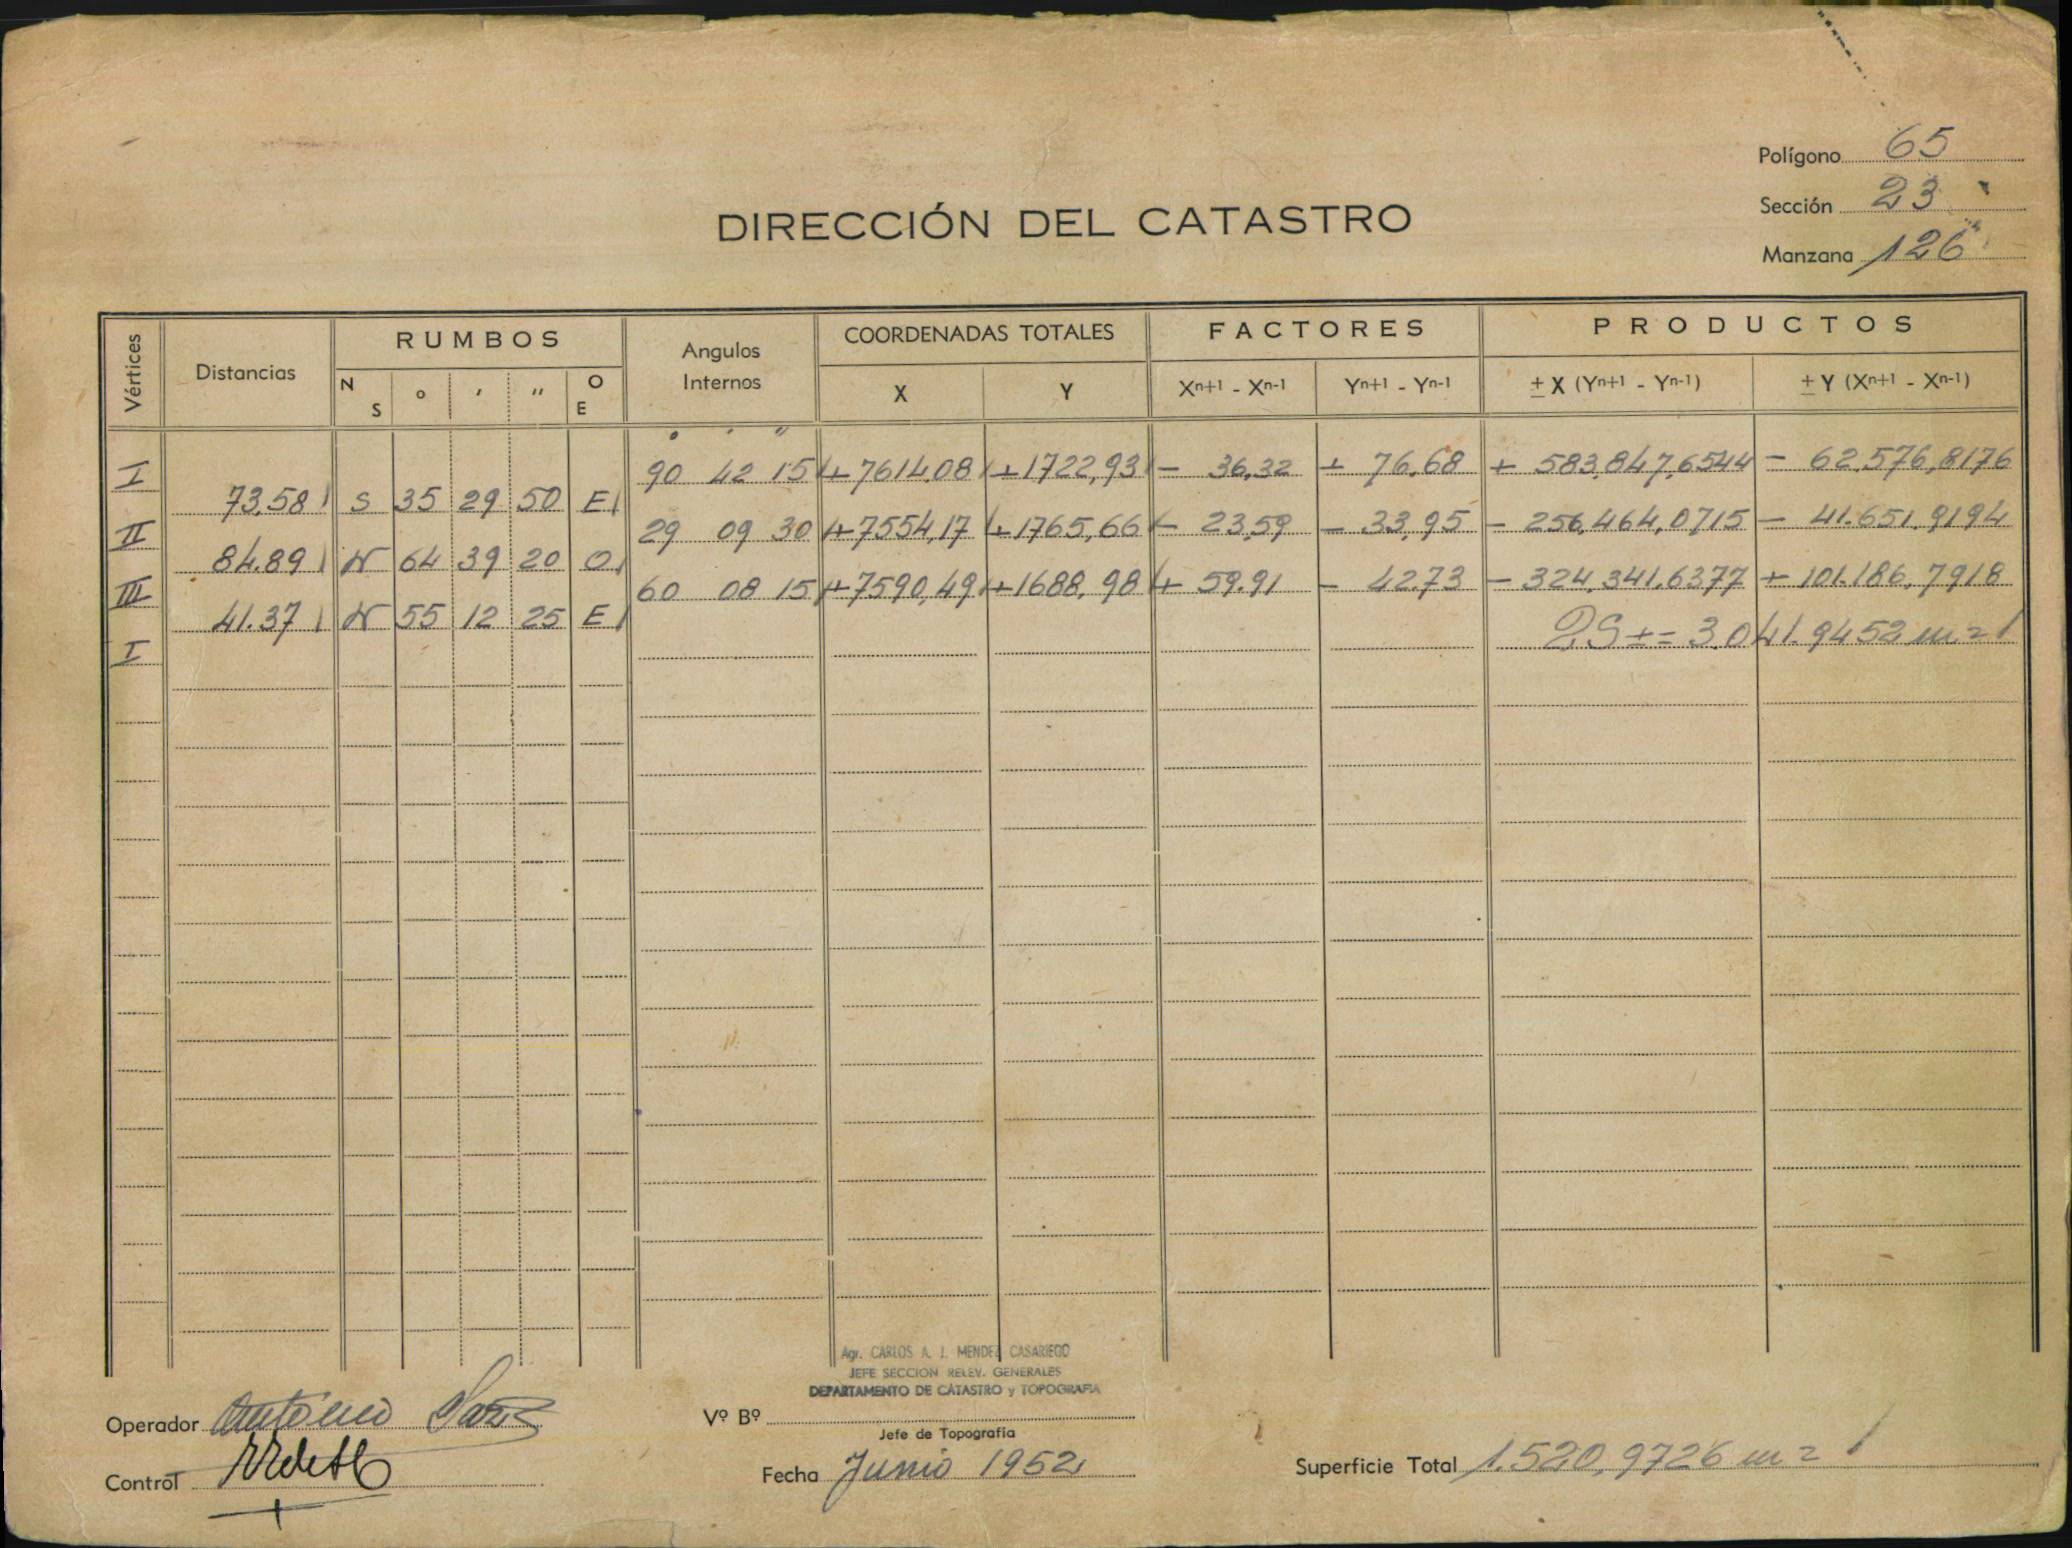 Polígono 65
Sección 23
Manzana 126
DIRECCIÓN DEL CATASTRO
Vértices Distancias RUMBOS Angulos Internos COORDENADAS TOTALES FACTORES PRODUCTOS
N S ° ' " O E X Y Xn+1 - Xn-1 Yn+1 - Yn-1 ± X (Yn+1 - Yn-1) ± Y (Xn+1 - Xn-1)
° ' "
I 90 42 15 +7614,08 +1722,93 - 36,32 + 76,68 + 583,847,6544 - 62.576,8176
73,58 S 35 29 50 E
II 29 09 30 +7554,17 +1765,66 - 23,59 - 33,95 - 256,464,0715 - 41.651,9194
84.89 N 64 39 20 O
III 60 08 15 +7590,49 +1688,98 + 59.91 - 42.73 - 324,341.6377 + 101.186,7918
41.37 N 55 12 25 E
I 2S ± = 3.041.9452 m2
Agr. CARLOS A. J. MENDEZ CASARIEGO
JEFE SECCION RELEV. GENERALES
DEPARTAMENTO DE CATASTRO y TOPOGRAFIA
Operador Antonio
Vº Bº
Jefe de Topografía
Control
Fecha Junio 1952
Superficie Total 1.520,9726 m2